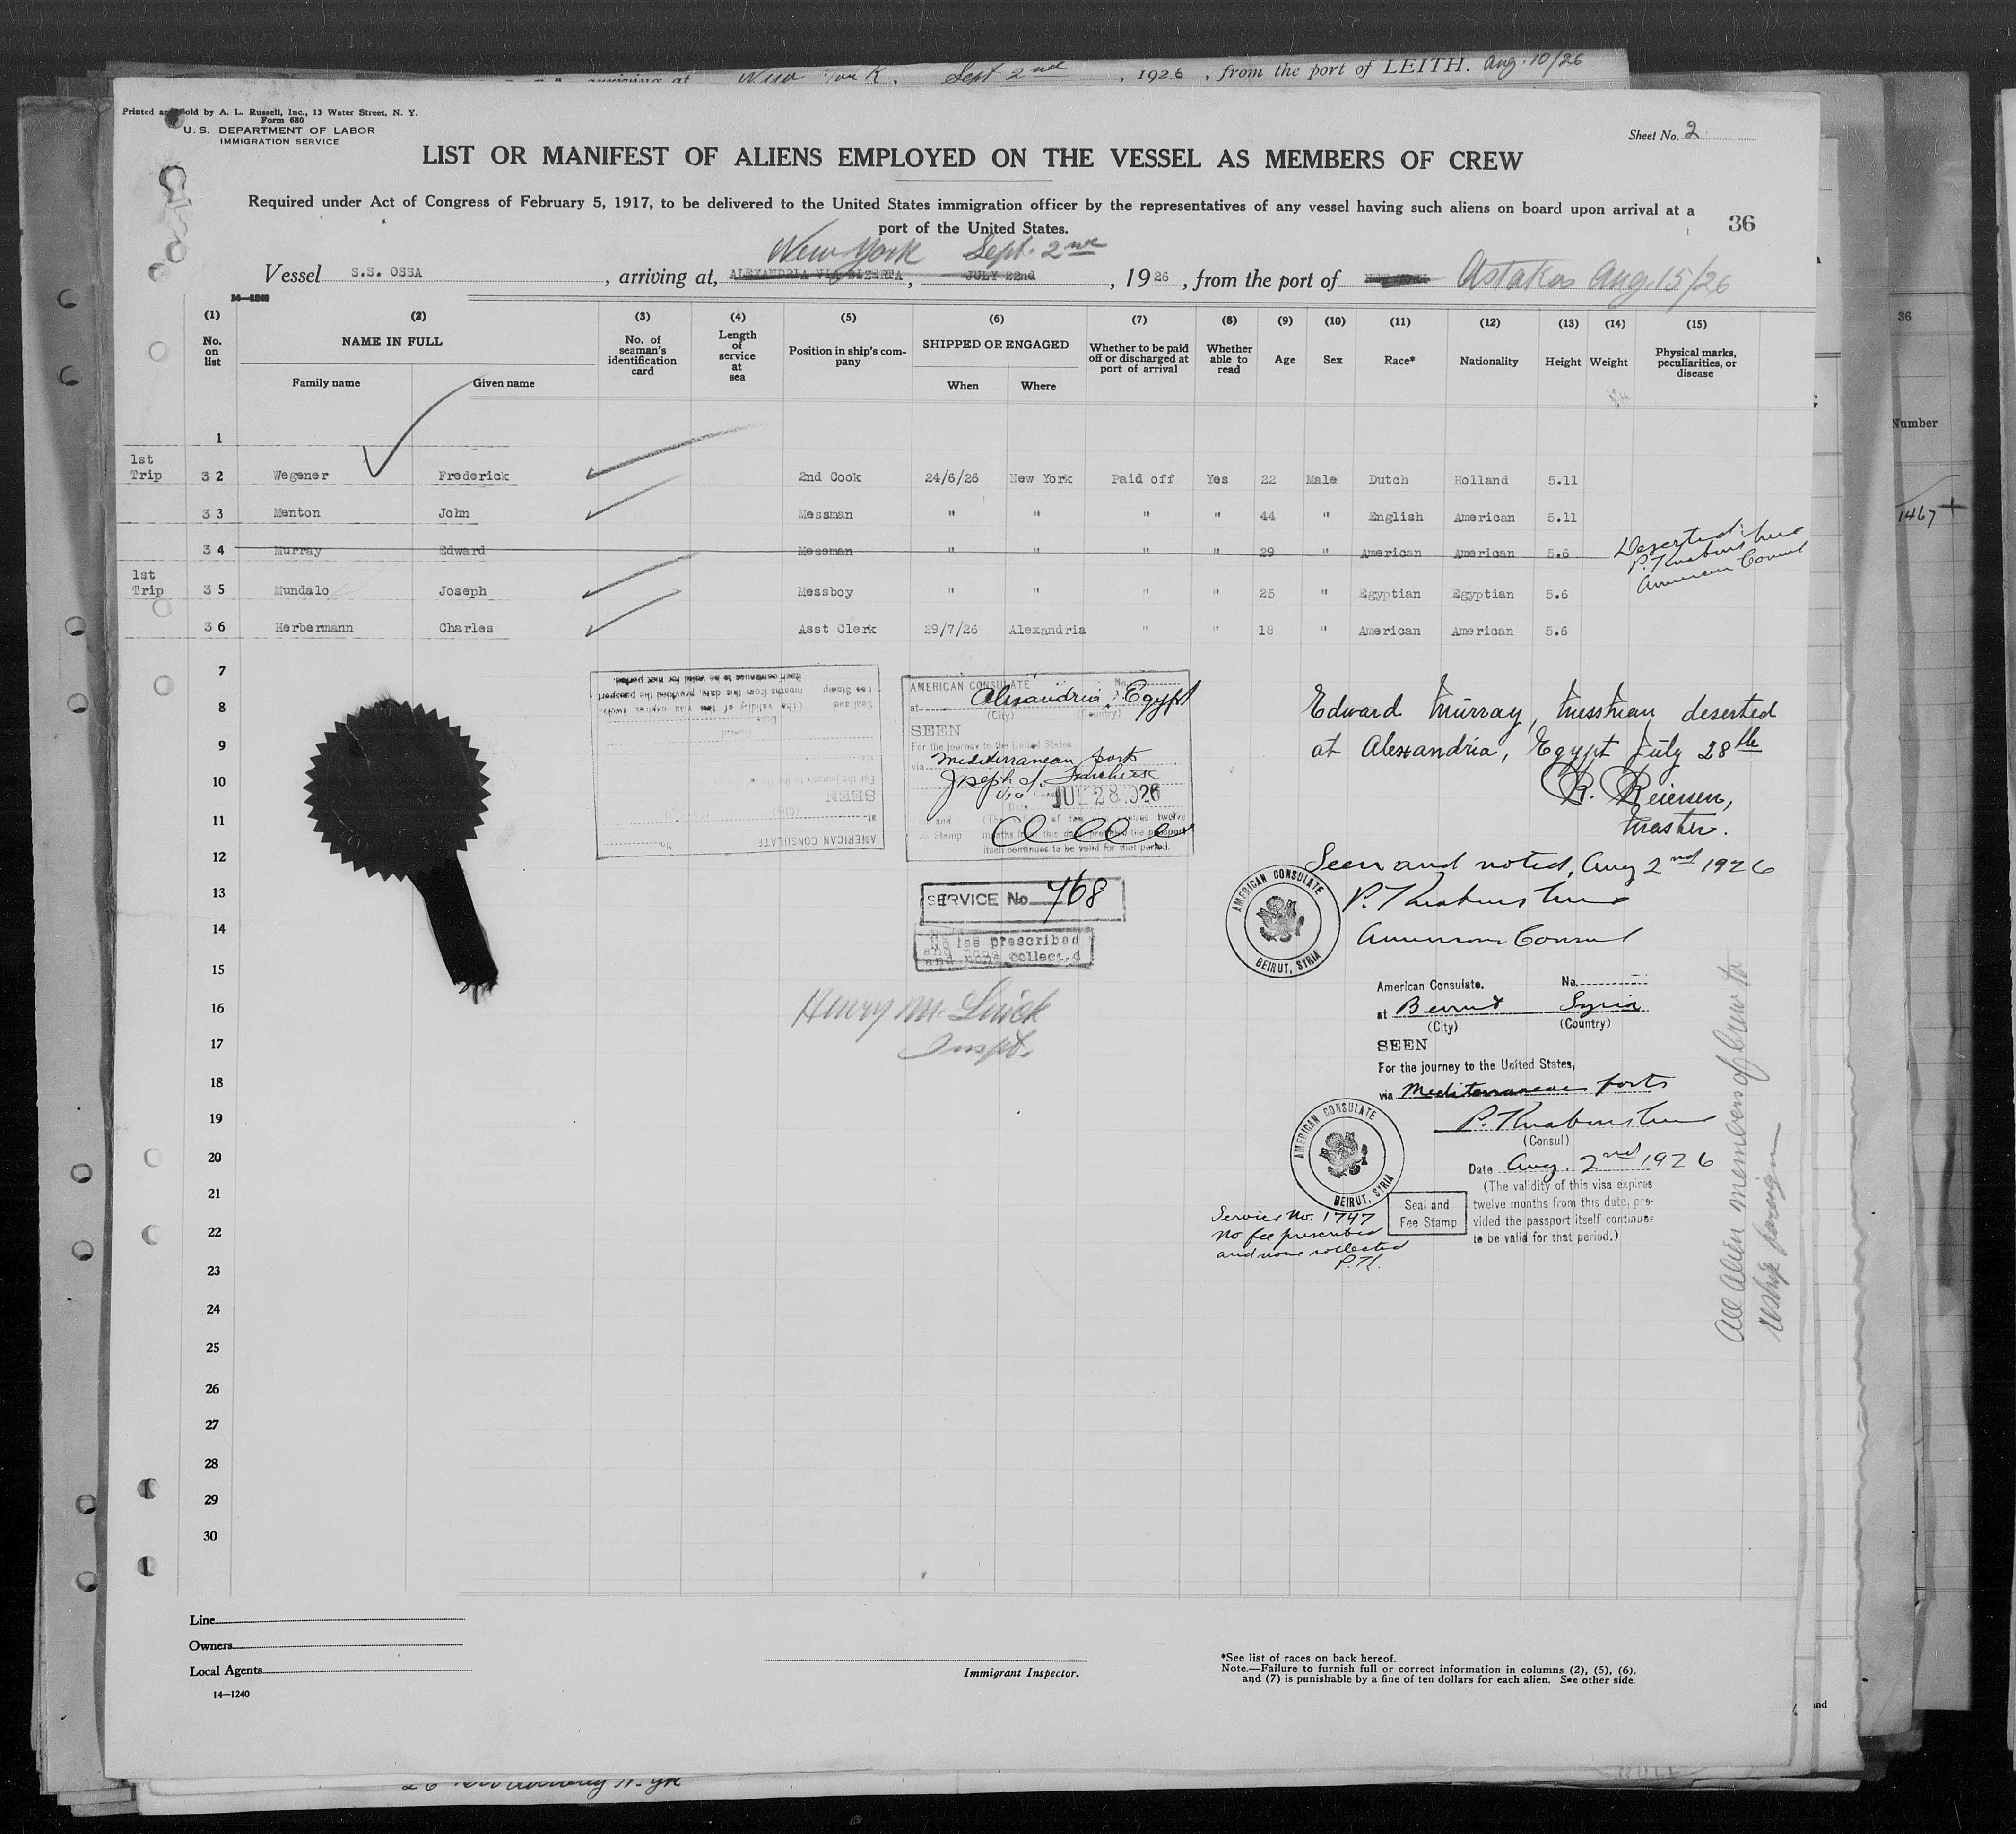 arriving at New York, Sept 2nd, 1926, from the port of LEITH. Aug. 10/26
Printed and Sold by A. L. Russell, Inc., 13 Water Street, N. Y.
Form 680
U. S. DEPARTMENT OF LABOR
IMMIGRATION SERVICE
Sheet No. 2
LIST OR MANIFEST OF ALIENS EMPLOYED ON THE VESSEL AS MEMBERS OF CREW
Required under Act of Congress of February 5, 1917, to be delivered to the United States immigration officer by the representatives of any vessel having such aliens on board upon arrival at a
port of the United States.
36
New York Sept. 2nd
Vessel S.S. OSSA, arriving at, ALEXANDRIA VIA BIZERTA, JULY 22nd, 1926, from the port of Astakos Aug. 15/26
14—1240
(1) (2) (3) (4) (5) (6) (7) (8) (9) (10) (11) (12) (13) (14) (15)
No. on list
NAME IN FULL
Family name Given name
No. of seaman's identification card
Length of service at sea
Position in ship's company
SHIPPED OR ENGAGED
When Where
Whether to be paid off or discharged at port of arrival
Whether able to read
Age
Sex
Race*
Nationality
Height
Weight
Physical marks, peculiarities, or disease
1
1st Trip 3 2 Wegener Frederick 2nd Cook 24/6/26 New York Paid off Yes 22 Male Dutch Holland 5.11
3 3 Menton John Messman " " " " 44 " English American 5.11
3 4 Murray Edward Messman " " " " 29 " American American 5.6
Deserted:
American Consul
1st Trip 3 5 Mundalo Joseph Messboy " " " " 25 " Egyptian Egyptian 5.6
3 6 Herbermann Charles Asst Clerk 29/7/26 Alexandria " " 18 " American American 5.6
7
8
9
10
11
12
13
14
15
16
17
18
19
20
21
22
23
24
25
26
27
28
29
30
AMERICAN CONSULATE No.
at Alexandria, Egypt
(City) (Country)
SEEN
For the journey to the United States
via Mediterranean ports
JUL 28 1926
itself continues to be valid for that period.
SERVICE No. 768
No fee prescribed
and none collected
Henry M.
Inspt.
Edward Murray, Messman deserted
at Alexandria, Egypt July 28th
R. Reiersen,
Master.
Seen and noted, Aug 2nd 1926
American Consul
AMERICAN CONSULATE
BEIRUT, SYRIA
American Consulate. No.
at Beirut Syria
(City) (Country)
SEEN
For the journey to the United States,
via Mediterranean ports
(Consul)
Date Aug. 2nd 1926
(The validity of this visa expires
twelve months from this date, pro-
vided the passport itself continues
to be valid for that period.)
AMERICAN CONSULATE
BEIRUT, SYRIA
Seal and
Fee Stamp
Service No. 1747
No fee prescribed
and none collected
P.K.
All Alien members of Crew to
reship foreign
Number
36
1467 +
Line
Owners
Local Agents
14—1240
Immigrant Inspector.
*See list of races on back hereof.
Note.—Failure to furnish full or correct information in columns (2), (5), (6),
and (7) is punishable by a fine of ten dollars for each alien. See other side.